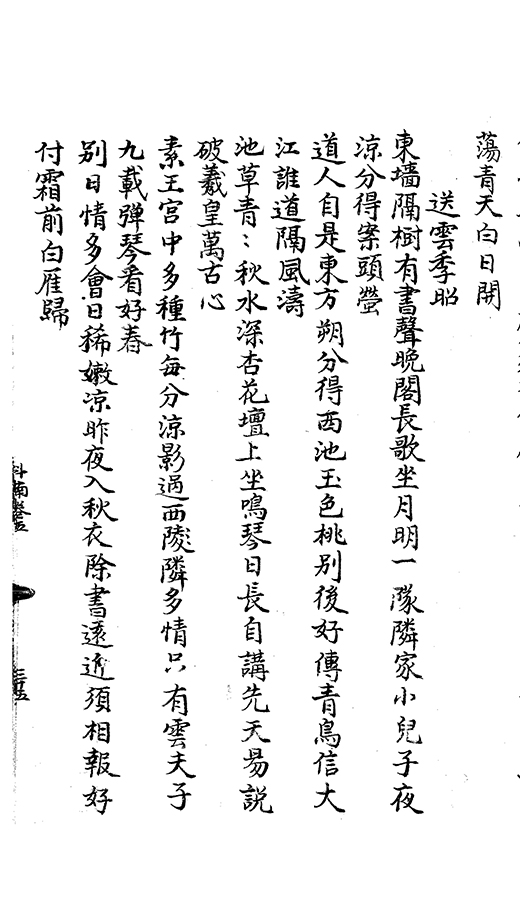 蕩青天白日開
送雲季昭
東墻隔樹有書聲晚閣長歌坐月明一隊隣家小兒子夜
涼分得案頭螢
道人自是東方朔分得西池玉色桃別後好傳青鳥信大
江誰道隔風濤
池草青〻秋水深杏花壇上坐鳴琴日長自講先天易説
破羲皇萬古心
素王宮中多種竹每分涼影過西陵隣多情只有雲夫子
九載弾琴看好春
別日情多會日稀嫩涼昨夜入秋衣除書遠近須相報好
付霜前白雁歸